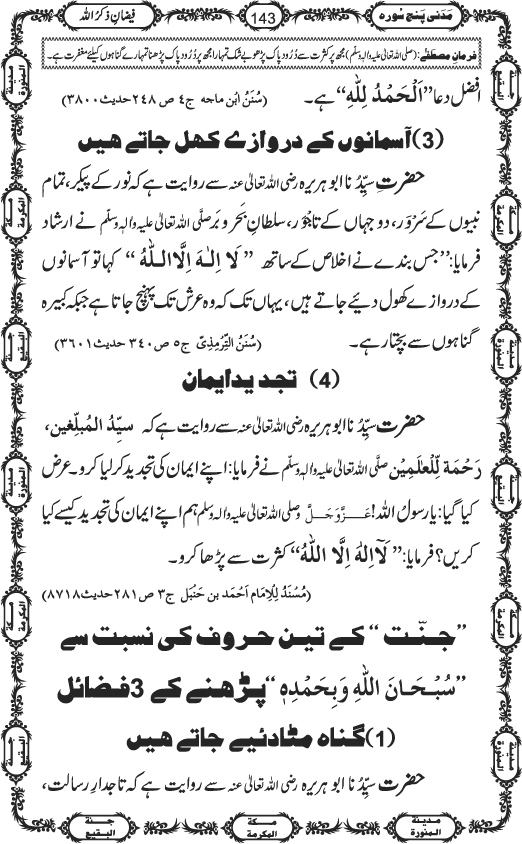 مَدَنی پنج سورہ
143
فیضانِ ذکرُ اللہ
فرمانِ مصطفٰے: (صلی اللہ تعالیٰ علیہ والہ وسلم) مجھ پر کثرت سے دُرُود پاک پڑھو بے شک تمہارا مجھ پر دُرُود پاک پڑھنا تمہارے گناہوں کیلئے مغفرت ہے۔
افضل دعا ”اَلْحَمْدُ لِلّٰهِ“ ہے۔ (سُنَنُ ابْن ماجه ج٤ ص ٢٤٨ حدیث ٣٨٠٠)
(3) آسمانوں کے دروازے کھل جاتے ھیں
حضرتِ سیِّدُ نا ابو ہریرہ رضی اللہ تعالیٰ عنہ سے روایت ہے کہ نور کے پیکر، تمام
نبیوں کے سَرْوَر، دو جہاں کے تاجْوَر، سلطانِ بَحرو بَر صلی اللہ تعالیٰ علیہ والہ وسلّم نے ارشاد
فرمایا: ”جس بندے نے اخلاص کے ساتھ ” لَا اِلٰـهَ اِلَّا اللّٰهُ “ کہا تو آسمانوں
کے دروازے کھول دئیے جاتے ہیں، یہاں تک کہ وہ عرش تک پہنچ جاتا ہے جبکہ کبیرہ
گناہوں سے بچتا رہے۔ (سُنَنُ التِّرْمِذِیّ ج٥ ص ٣٤٠ حدیث ٣٦٠١)
(4) تجدیدِ ایمان
حضرتِ سیِّدُ نا ابو ہریرہ رضی اللہ تعالیٰ عنہ سے روایت ہے کہ سیِّدُ المُبلِّغین،
رَحْمَةٌ لِّلْعٰلَمِیْن صلَّی اللہ تعالیٰ علیہ والہ وسلّم نے فرمایا: اپنے ایمان کی تجدید کر لیا کرو۔ عرض
کیا گیا: یا رسولَ اللہ! عَـزَّوَجَلَّ و صلی اللہ تعالیٰ علیہ والہ وسلم ہم اپنے ایمان کی تجدید کیسے کیا
کریں؟ فرمایا: ” لَآ اِلٰهَ اِلَّا اللّٰهُ “ کثرت سے پڑھا کرو۔
(مُسْنَدُ لِلْاِمَام اَحْمَد بن حَنْبَل ج٣ ص ٢٨١ حدیث ٨٧١٨)
”جنّت “ کے تین حروف کی نسبت سے
”سُبْحَـانَ اللّٰهِ وَبِحَمْدِهٖ“ پڑھنے کے 3 فضائل
(1) گناہ مٹا دئیے جاتے ھیں
حضرتِ سیِّدُ نا ابو ہریرہ رضی اللہ تعالیٰ عنہ سے روایت ہے کہ تاجدارِ رسالت،
مدینۃ المنورۃ
مکۃ المکرمۃ
جنۃ البقیع
مدینۃ المنورۃ
مکۃ المکرمۃ
جنۃ البقیع
جنۃ البقیع
مکۃ المکرمۃ
مدینۃ المنورۃ
جنۃ البقیع
مکۃ المکرمۃ
مدینۃ المنورۃ
جنۃ البقیع
مکۃ المکرمۃ
مدینۃ المنورۃ